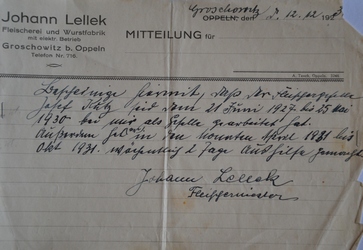 Johann Lellek
Fleischerei und Wurstfabrik
mit elektr. Betrieb
Groschowitz b. Oppeln
Telefon Nr. 716.
MITTEILUNG für
Groschowitz
OPPELN, den 12. 12. 193
Bescheinige hiermit, dass der Fleischergeselle
Josef seit dem 21 Juni 1927 bis 25 Mai
1930 bei mir als Geselle gearbeitet hat.
Außerdem hat er in den Monaten April 1931 bis
Okt 1931. wöchentlich 2 Tage Aushilfe gemacht
Johann Lellek
Fleischermeister